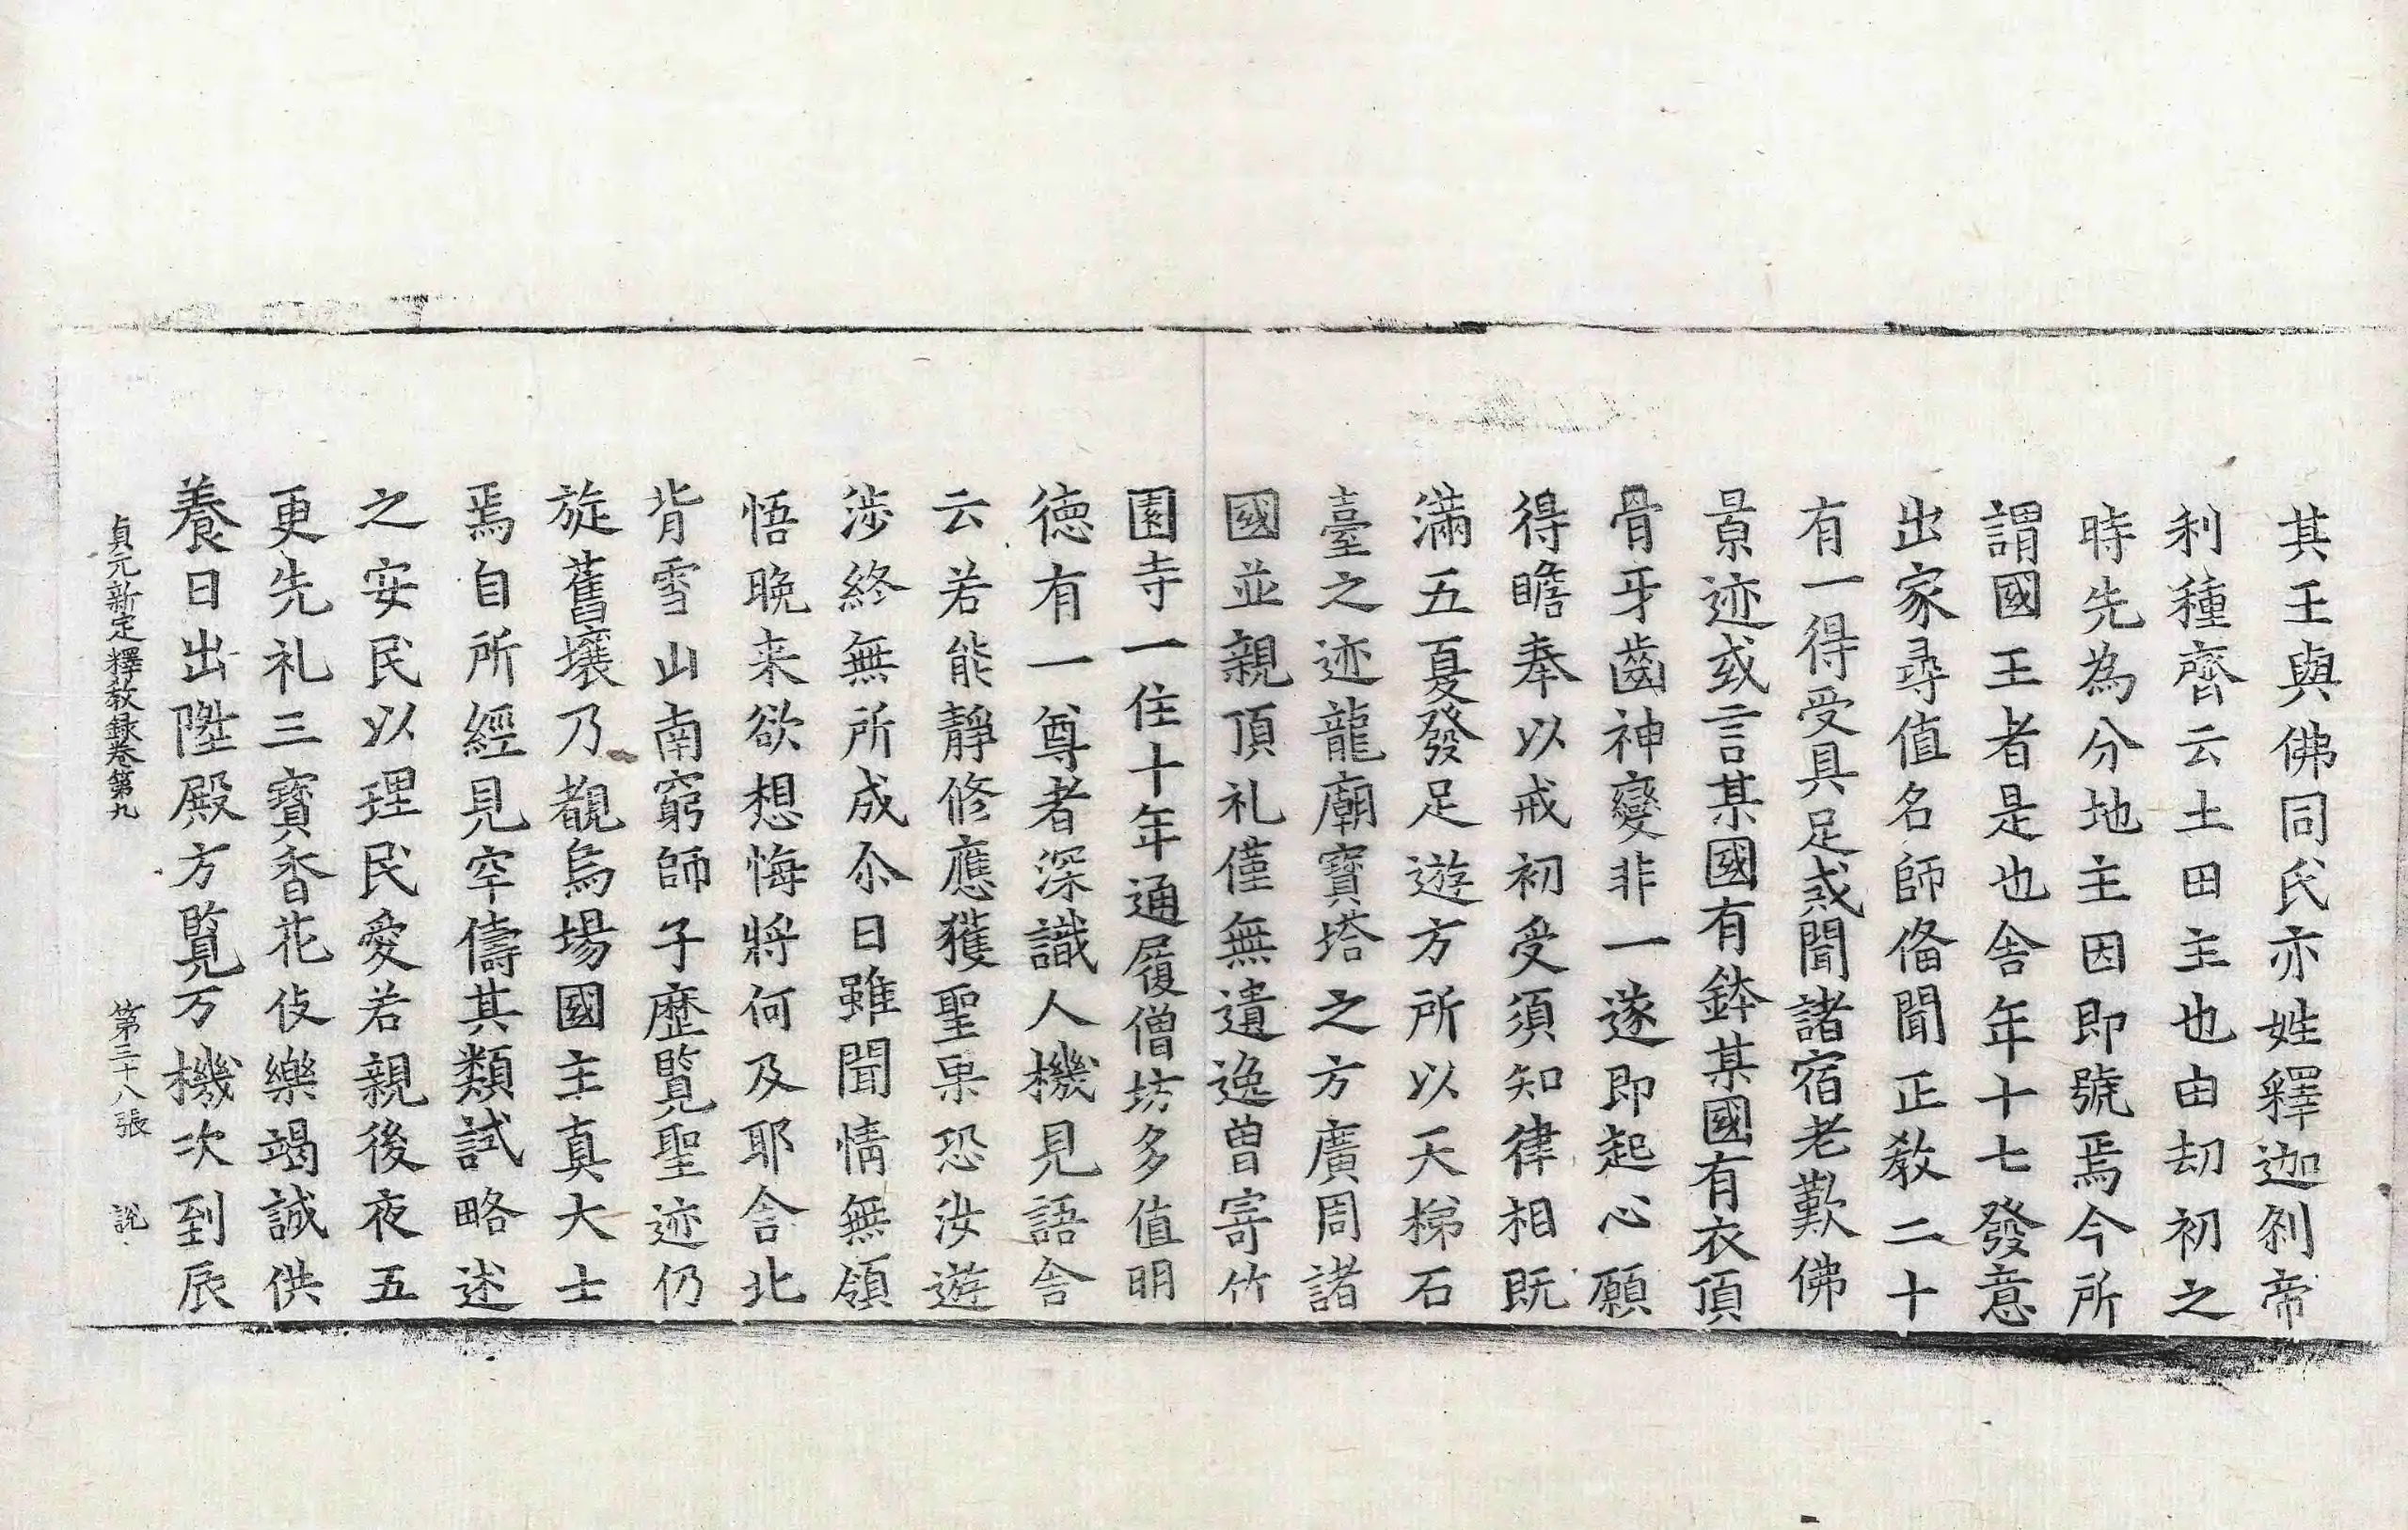 其王與佛同氏亦姓釋迦刹帝
利種齊云土田主也由刧初之
時先為分地主因即號焉今所
謂國王者是也舍年十七發意
出家尋值名師俻聞正教二十
有一得受具足或聞諸宿老歎佛
景迹或言某國有鉢某國有衣頂
骨牙齒神變非一遂即起心願
得瞻奉以戒初受須知律相既
滿五夏發足遊方所以天梯石
臺之迹龍廟寶塔之方廣周諸
國並親頂礼僅無遺逸曾寄竹
園寺一住十年通履僧坊多值明
德有一尊者深識人機見語舍
云若能靜修應獲聖果恐汝遊
涉終無所成尒日雖聞情無領
悟晚来欲想悔將何及耶舍北
背雪山南窮師子歴覧聖迹仍
旋舊壤乃覩烏場國主真大士
焉自所經見罕儔其類試略述
之安民以理民愛若親後夜五
更先礼三寶香花伎樂竭誠供
養日出陞殿方覧万機次到辰
貞元新定釋教録卷第九 第三十八張 說